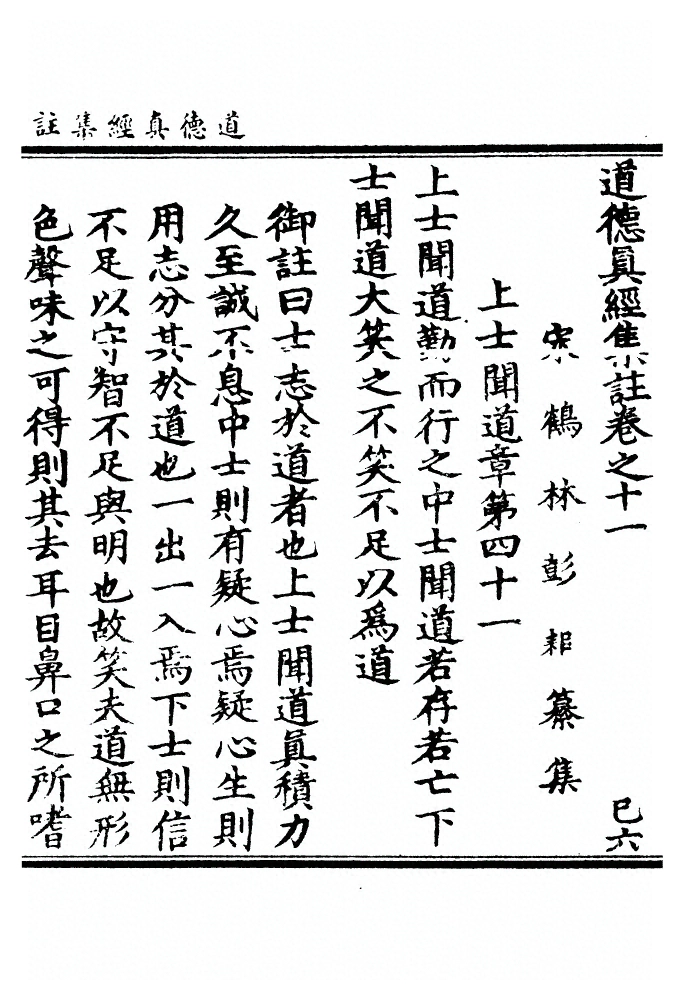 道德真經集註
道德眞經集註卷之十一 巳六
宋鶴林彭耜纂集
上士聞道章第四十一
上士聞道勤而行之中士聞道若存若亡下
士聞道大笑之不笑不足以爲道
御註曰士志於道者也上士聞道眞積力
久至誠不息中士則有疑心焉疑心生則
用志分其於道也一出一入焉下士則信
不足以守智不足與明也故笑夫道無形
色聲味之可得則其去耳目鼻口之所嗜